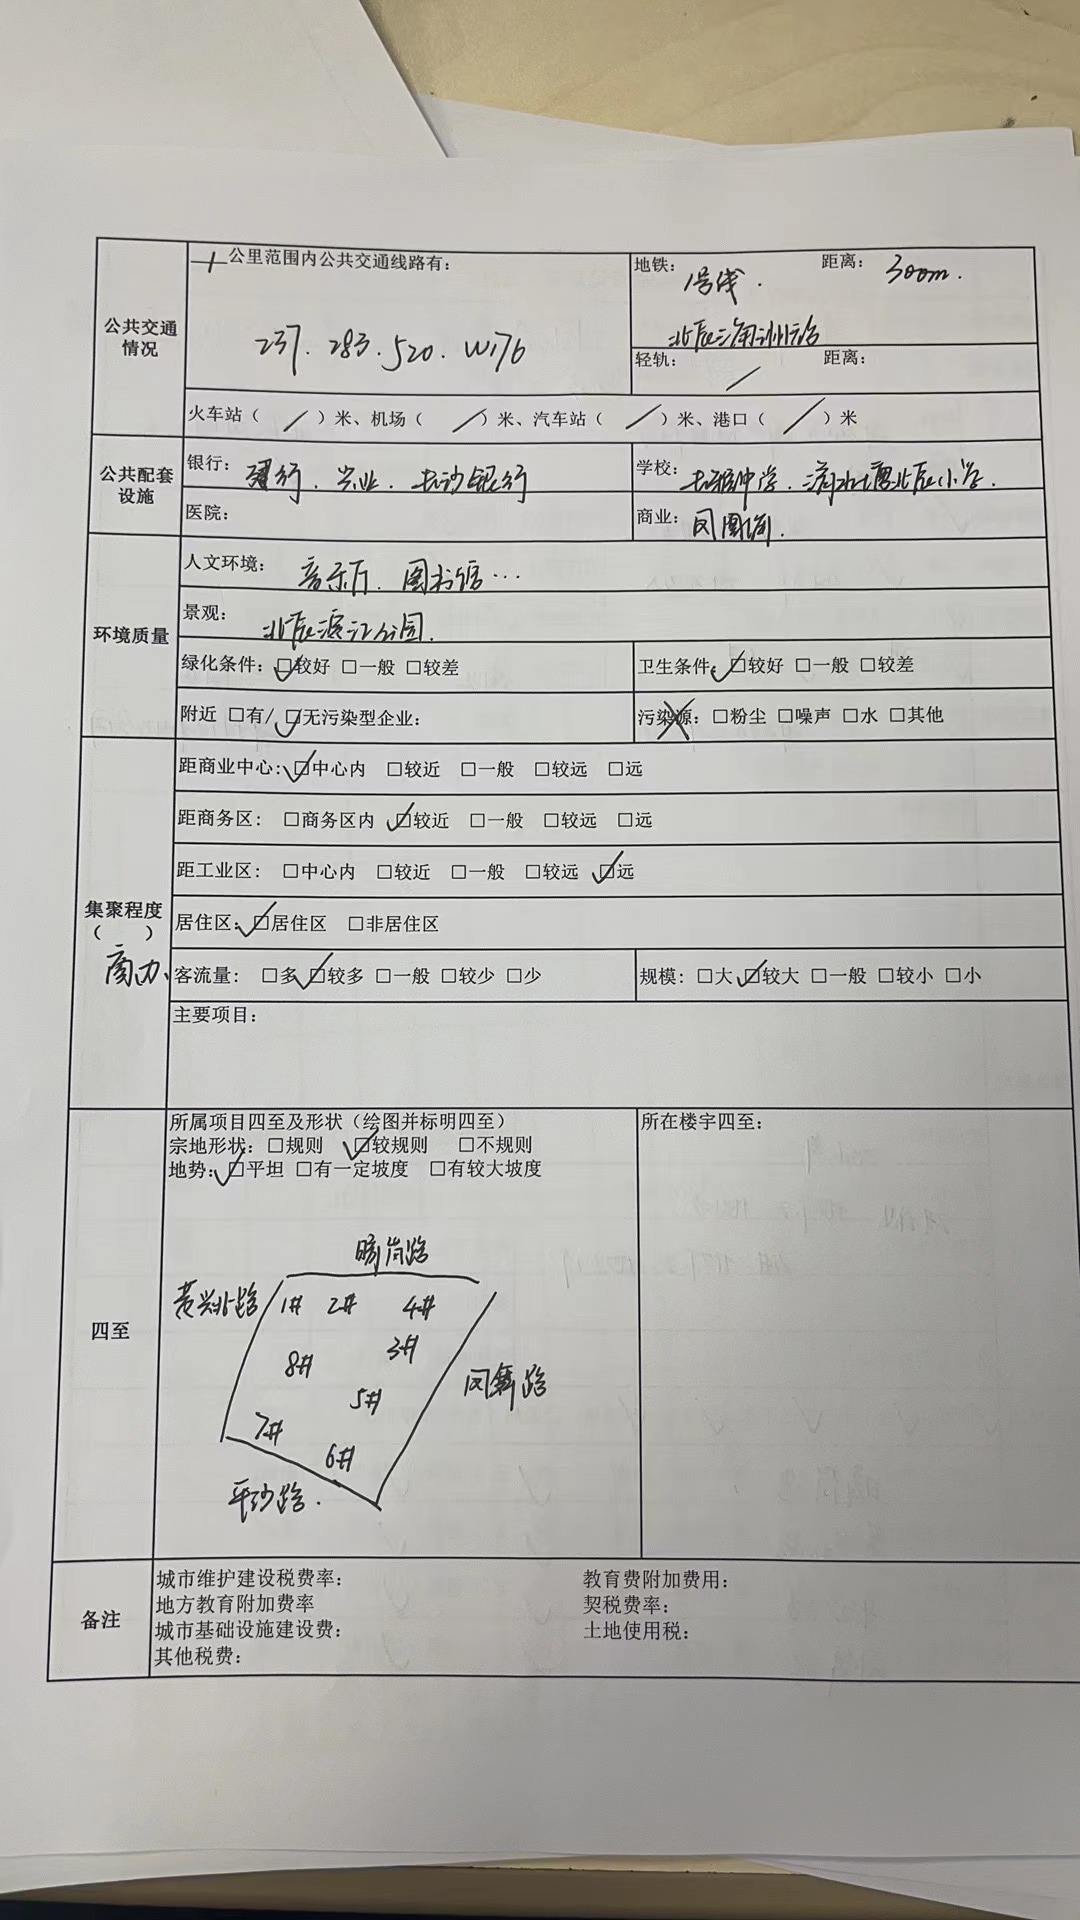 公共交通情况
1公里范围内公共交通线路有：
237. 283. 520. W176
地铁： 1号线. 距离： 300m.
北辰三角洲站
轻轨： / 距离：
火车站（ / ）米、机场（ / ）米、汽车站（ / ）米、港口（ / ）米
公共配套设施
银行： 建行. 兴业. 长沙银行
学校： 长雅中学. 清水塘北辰小学.
医院：
商业： 凤凰街.
环境质量
人文环境： 音乐厅. 图书馆…
景观： 北辰滨江公园.
绿化条件：☑较好 □一般 □较差
卫生条件：☑较好 □一般 □较差
附近 □有/☑无污染型企业：
污染源：□粉尘 □噪声 □水 □其他
集聚程度
（ ）
商办.
距商业中心：☑中心内 □较近 □一般 □较远 □远
距商务区： □商务区内 ☑较近 □一般 □较远 □远
距工业区： □中心内 □较近 □一般 □较远 ☑远
居住区：☑居住区 □非居住区
客流量： □多 ☑较多 □一般 □较少 □少
规模：□大 ☑较大 □一般 □较小 □小
主要项目：
四至
所属项目四至及形状（绘图并标明四至）
宗地形状：□规则 ☑较规则 □不规则
地势：☑平坦 □有一定坡度 □有较大坡度
所在楼宇四至：
黄兴北路
1# 2# 4#
3#
8#
凤舞路
5#
7#
6#
平沙路.
备注
城市维护建设税费率：
教育费附加费用：
地方教育附加费率
契税费率：
城市基础设施建设费：
土地使用税：
其他税费：